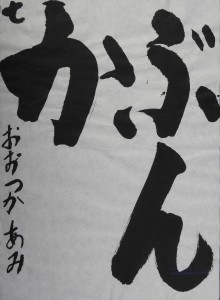 ぶん
か
七 おおつかあみ